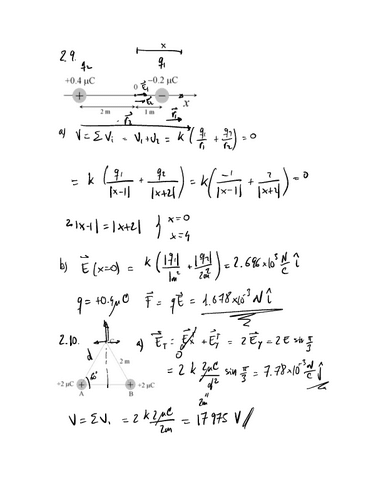 x
2.9. q₂ q₁
+0.4 μC 0 E⃗₁ −0.2 μC
r⃗₂ x
2 m 1 m r⃗₁
r⃗₂
a) V = ΣVᵢ = V₁+V₂ = k (q₁/r₁ + q₂/r₂) = 0
= k (q₁/|x-1| + q₂/|x+2|) = k (-1/|x-1| + 2/|x+2|) = 0
2·|x-1| = |x+2| { x=0
x=4
b) E⃗ (x=0) = k (|q₁|/1m² + |q₂|/2m²) = 2.696×10³ N/C î
q = +0.4 μC F⃗ = qE⃗ = 1.078×10⁻³ N î
2.10. a) E⃗_T = E⃗x + E⃗y = 2E⃗y = 2E sin π/3
0
d 2 m
+2 μC 60° +2 μC
A B
= 2 k 2μC/d² sin π/3 = 7.78×10⁻³ N/C ĵ
2m
V = ΣVᵢ = 2 k 2μC/2m = 17975 V